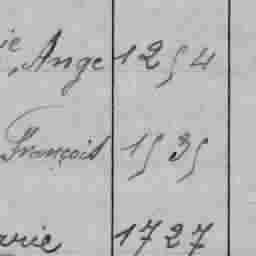 ie Ange 1254
François 1535
arie 1727